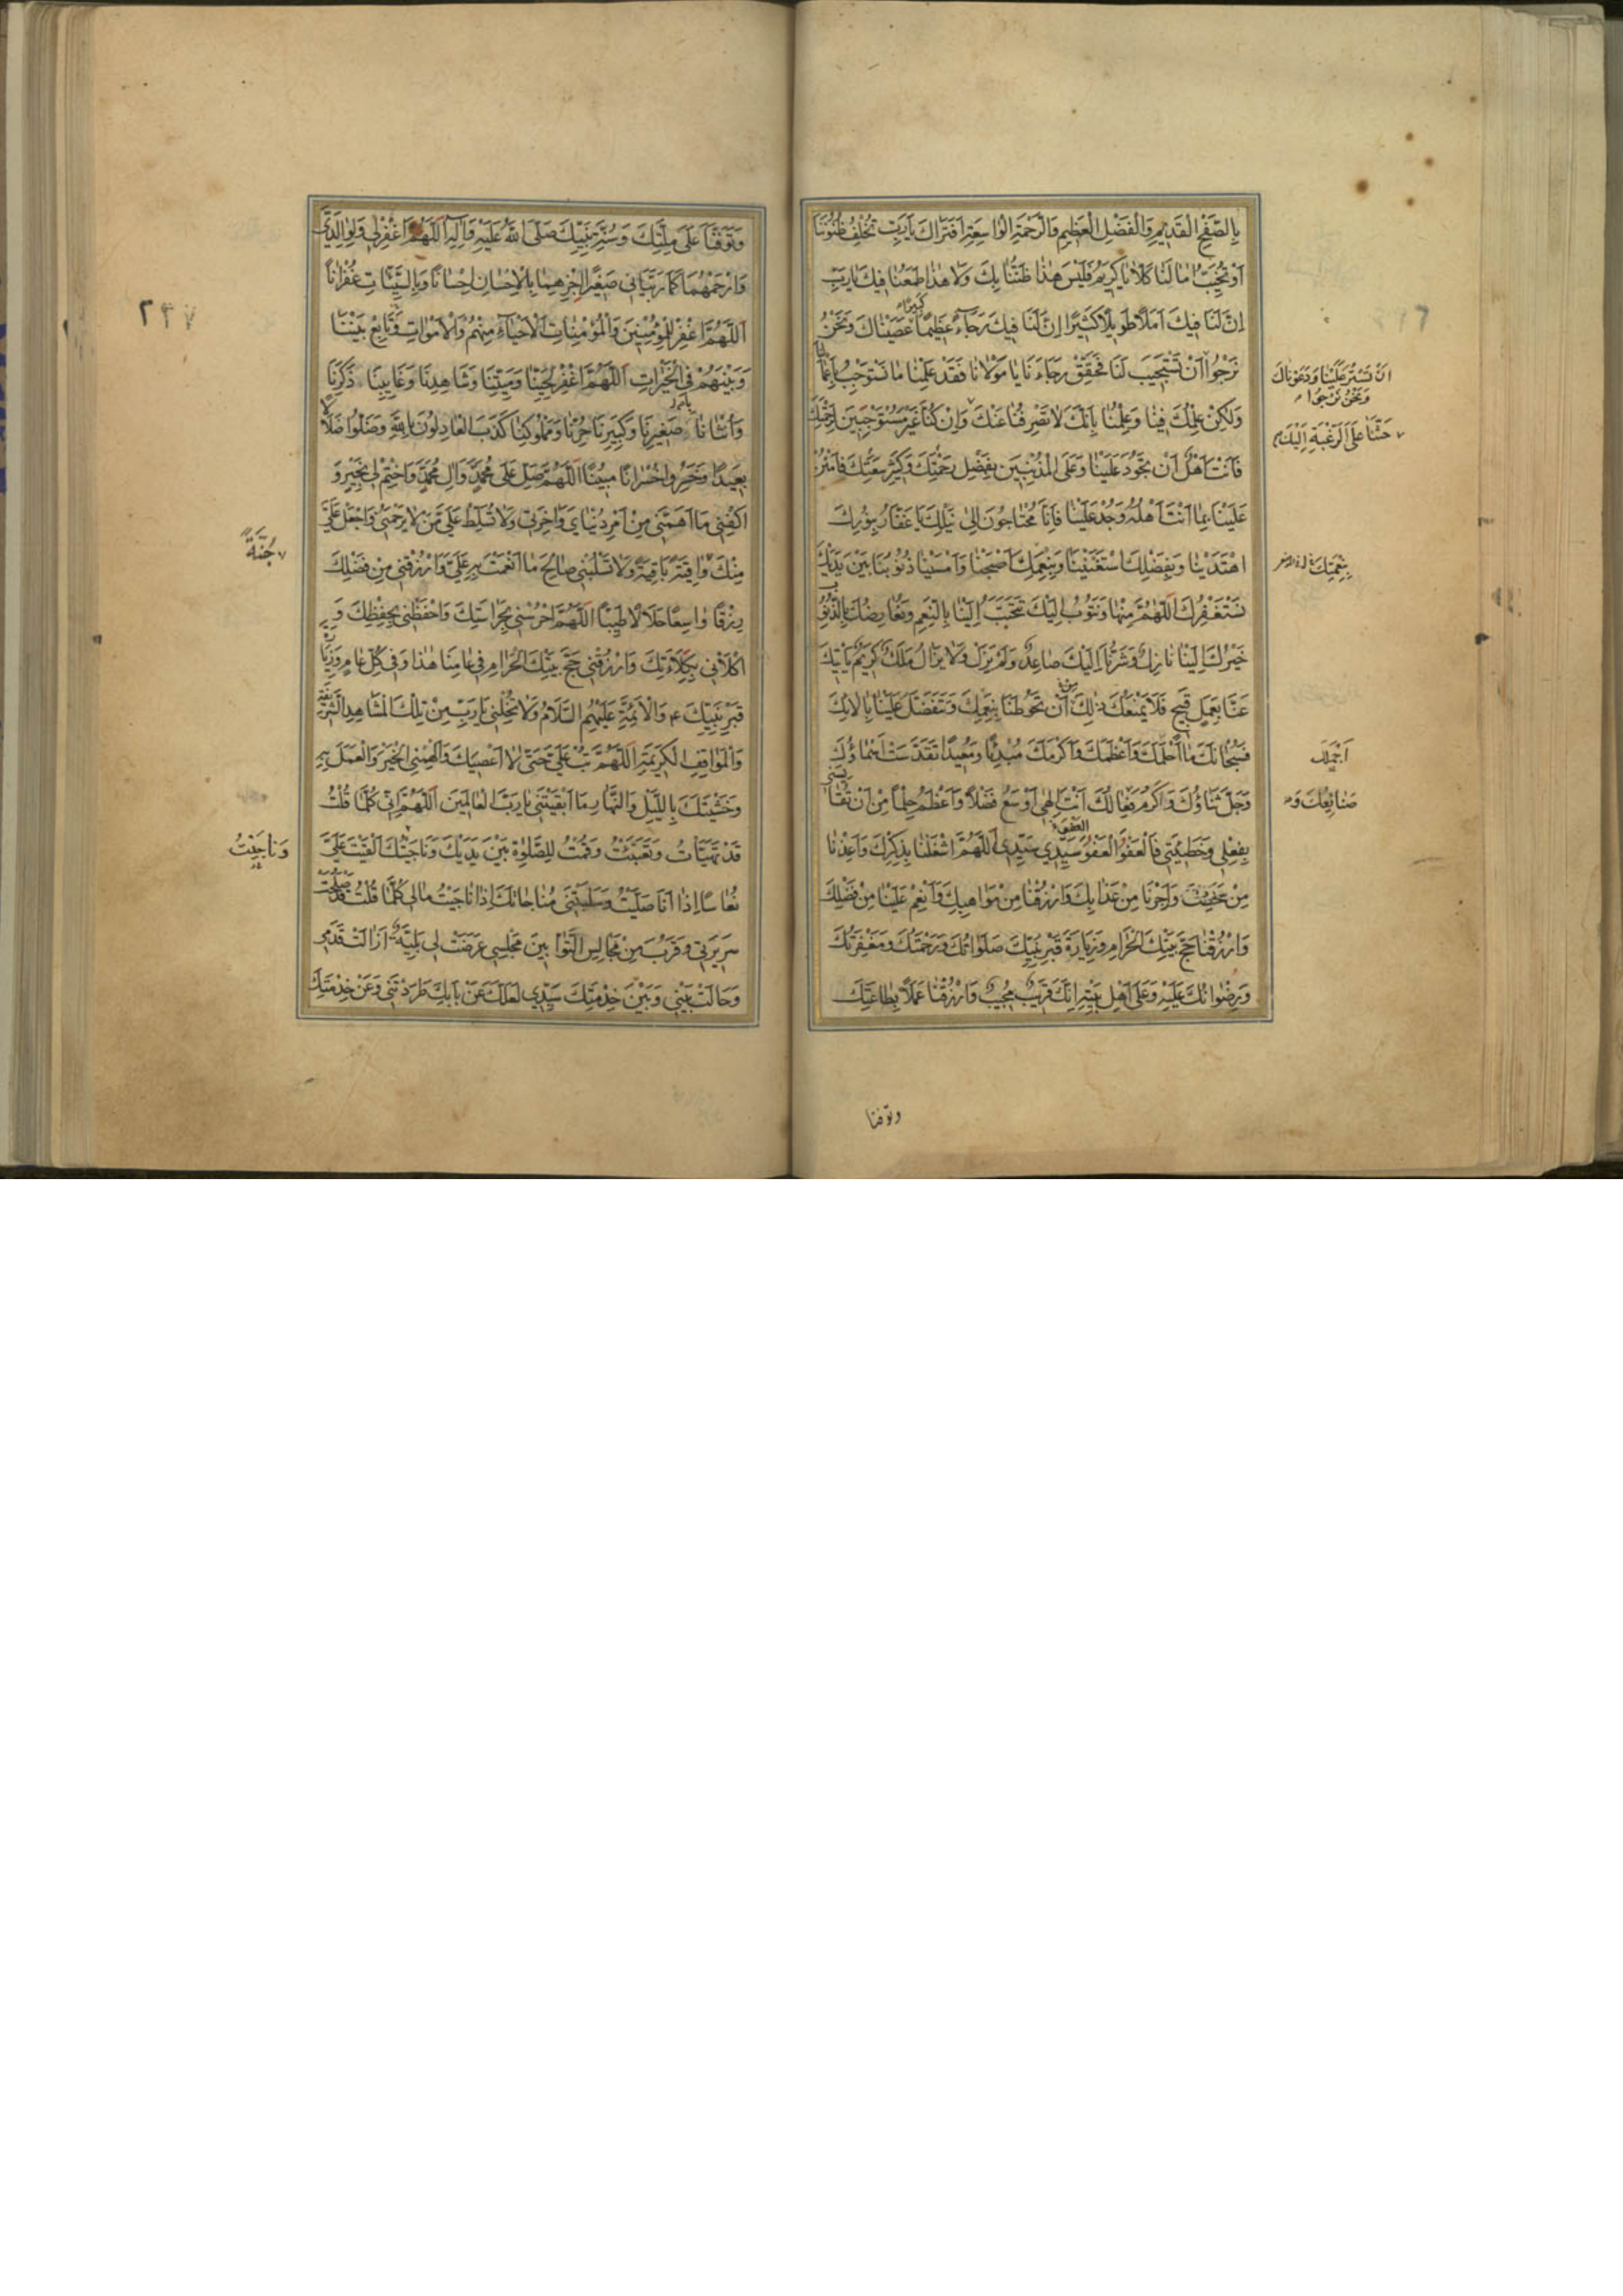 بِالصَّفْحِ الْقَدِيمِ وَالْفَضْلِ الْعَظِيمِ وَالرَّحْمَةِ الْوَاسِعَةِ افَتَرَاكَ يَا رَبِّ تُخْلِفُ ظُنُونَنَا
اَوْ تُخَيِّبُ اٰمَالَنَا كَلَّا يَا كَرِيمُ فَلَيْسَ هٰذَا ظَنُّنَا بِكَ وَلَا هٰذَا طَمَعُنَا فِيكَ يَا رَبِّ
اِنَّ لَنَا فِيكَ اَمَلًا طَوِيلًا كَثِيرًا اِنَّ لَنَا فِيكَ رَجَآءً عَظِيمًا عَصَيْنَاكَ وَنَحْنُ
كَبِيرًا
نَرْجُوا اَنْ تَسْتَجِيبَ لَنَا فَحَقِّقْ رَجَاءَنَا يَا مَوْلَانَا فَقَدْ عَلِمْنَا مَا نَسْتَوْجِبُ بِاَعْمَالِنَا
اَنْ تَسْتُرَ عَلَيْنَا وَدَعَوْنَاكَ
وَنَحْنُ نَرْجُوا
وَلٰكِنْ عِلْمُكَ فِينَا وَعِلْمُنَا بِاَنَّكَ لَا تَصْرِفُنَا عَنْكَ وَاِنْ كُنَّا غَيْرَ مُسْتَوْجِبِينَ لِرَحْمَتِكَ
حَثَّنَا عَلَى الرَّغْبَةِ اِلَيْكَ
فَاَنْتَ اَهْلٌ اَنْ تَجُودَ عَلَيْنَا وَعَلَى الْمُذْنِبِينَ بِفَضْلِ رَحْمَتِكَ وَكَثِيرِ سَعَتِكَ فَامْنُنْ
عَلَيْنَا بِمَا اَنْتَ اَهْلُهُ وَجُدْ عَلَيْنَا فَاِنَّا مُحْتَاجُونَ اِلٰى نَيْلِكَ يَا غَفَّارُ بِنُورِكَ
اهْتَدَيْنَا وَبِفَضْلِكَ اسْتَغْنَيْنَا وَبِنِعَمِكَ اَصْبَحْنَا وَاَمْسَيْنَا ذُنُوبُنَا بَيْنَ يَدَيْكَ
بِنِعْمَتِكَ
نَسْتَغْفِرُكَ اللّٰهُمَّ مِنْهَا وَنَتُوبُ اِلَيْكَ تَتَحَبَّبُ اِلَيْنَا بِالنِّعَمِ وَنُعَارِضُكَ بِالذُّنُوبِ
خَيْرُكَ اِلَيْنَا نَازِلٌ وَشَرُّنَا اِلَيْكَ صَاعِدٌ وَلَمْ يَزَلْ وَلَا يَزَالُ مَلَكٌ كَرِيمٌ يَأْتِيكَ
عَنَّا بِعَمَلٍ قَبِيحٍ فَلَا يَمْنَعُكَ ذٰلِكَ اَنْ تَحُوطَنَا بِنِعَمِكَ وَتَتَفَضَّلَ عَلَيْنَا بِاٰلَائِكَ
مِنْ
فَسُبْحَانَكَ مَا اَحْلَمَكَ وَاَعْظَمَكَ وَاَكْرَمَكَ مُبْدِئًا وَمُعِيدًا تَقَدَّسَتْ اَسْمَاؤُكَ
وَجَلَّ ثَنَاؤُكَ وَاَكْرَمَ فِعَالُكَ اَنْتَ اِلٰهِى اَوْسَعُ فَضْلًا وَاَعْظَمُ حِلْمًا مِنْ اَنْ تُقَايِسَنِى
صَنَائِعُكَ وَ
بِفِعْلِى وَخَطِيئَتِى فَالْعَفْوَ الْعَفْوَ سَيِّدِى سَيِّدِى اللّٰهُمَّ اشْغَلْنَا بِذِكْرِكَ وَاَعِذْنَا
الْعَفْوَ
مِنْ سَخَطِكَ وَاَجِرْنَا مِنْ عَذَابِكَ وَارْزُقْنَا مِنْ مَوَاهِبِكَ وَاَنْعِمْ عَلَيْنَا مِنْ فَضْلِكَ
وَارْزُقْنَا حَجَّ بَيْتِكَ الْحَرَامِ وَزِيَارَةَ قَبْرِ نَبِيِّكَ صَلَوَاتُكَ وَرَحْمَتُكَ وَمَغْفِرَتُكَ
وَرِضْوَانُكَ عَلَيْهِ وَعَلَى اَهْلِ بَيْتِهِ اِنَّكَ قَرِيبٌ مُجِيبٌ وَارْزُقْنَا عَمَلًا بِطَاعَتِكَ
وتوفنا
٢٤٧
وَتَوَفَّنَا عَلَى مِلَّتِكَ وَسُنَّةِ نَبِيِّكَ صَلَّى اللّٰهُ عَلَيْهِ وَاٰلِهِ اللّٰهُمَّ اغْفِرْ لِى وَلِوَالِدَىَّ
وَارْحَمْهُمَا كَمَا رَبَّيَانِى صَغِيرًا اجْزِهِمَا بِالْاِحْسَانِ اِحْسَانًا وَبِالسَّيِّئَاتِ غُفْرَانًا
اللّٰهُمَّ اغْفِرْ لِلْمُؤْمِنِينَ وَالْمُؤْمِنَاتِ الْاَحْيَآءِ مِنْهُمْ وَالْاَمْوَاتِ وَتَابِعْ بَيْنَنَا
وَبَيْنَهُمْ فِى الْخَيْرَاتِ اللّٰهُمَّ اغْفِرْ لِحَيِّنَا وَمَيِّتِنَا وَشَاهِدِنَا وَغَايِبِنَا ذَكَرِنَا
وَاُنْثَانَا صَغِيرِنَا وَكَبِيرِنَا حُرِّنَا وَمَمْلُوكِنَا كَذَبَ الْعَادِلُونَ بِاللّٰهِ وَضَلُّوا ضَلَالًا
بَعِيدًا وَخَسِرُوا خُسْرَانًا مُبِينًا اللّٰهُمَّ صَلِّ عَلَى مُحَمَّدٍ وَاٰلِ مُحَمَّدٍ وَاخْتِمْ لِى بِخَيْرٍ وَ
اكْفِنِى مَا اَهَمَّنِى مِنْ اَمْرِ دُنْيَاىَ وَاٰخِرَتِى وَلَا تُسَلِّطْ عَلَىَّ مَنْ لَا يَرْحَمُنِى وَاجْعَلْ عَلَىَّ
مِنْكَ وَاقِيَةً بَاقِيَةً وَلَا تَسْلُبْنِى صَالِحَ مَا اَنْعَمْتَ بِهِ عَلَىَّ وَارْزُقْنِى مِنْ فَضْلِكَ
جُنَّةً
رِزْقًا وَاسِعًا حَلَالًا طَيِّبًا اللّٰهُمَّ احْرُسْنِى بِحَرَاسَتِكَ وَاحْفَظْنِى بِحِفْظِكَ وَ
اكْلَأْنِى بِكِلَاءَتِكَ وَارْزُقْنِى حَجَّ بَيْتِكَ الْحَرَامِ فِى عَامِنَا هٰذَا وَفِى كُلِّ عَامٍ وَزِيَارَةَ
قَبْرِ نَبِيِّكَ وَالْاَئِمَّةِ عَلَيْهِمُ السَّلَامُ وَلَا تُخْلِنِى يَا رَبِّ مِنْ تِلْكَ الْمَشَاهِدِ الشَّرِيفَةِ
وَالْمَوَاقِفِ الْكَرِيمَةِ اللّٰهُمَّ تُبْ عَلَىَّ حَتَّى لَا اَعْصِيَكَ وَاَلْهِمْنِى الْخَيْرَ وَالْعَمَلَ بِهِ
وَخَشْيَتَكَ بِاللَّيْلِ وَالنَّهَارِ مَا اَبْقَيْتَنِى يَا رَبَّ الْعَالَمِينَ اللّٰهُمَّ اِنِّى كُلَّمَا قُلْتُ
قَدْ تَهَيَّاْتُ وَتَعَبَّئْتُ وَقُمْتُ لِلصَّلٰوةِ بَيْنَ يَدَيْكَ وَنَاجَيْتُكَ اَلْقَيْتَ عَلَىَّ
وَنَاجَيْتُ
نُعَاسًا اِذَا اَنَا صَلَّيْتُ وَسَلَبْتَنِى مُنَاجَاتَكَ اِذَا اَنَا نَاجَيْتُ مَالِى كُلَّمَا قُلْتُ قَدْ صَلَحَتْ
سَرِيرَتِى وَقَرُبَ مِنْ مَجَالِسِ التَّوَّابِينَ مَجْلِسِى عَرَضَتْ لِى بَلِيَّةٌ اَزَالَتْ قَدَمِى
وَحَالَتْ بَيْنِى وَبَيْنَ خِدْمَتِكَ سَيِّدِى لَعَلَّكَ عَنْ بَابِكَ طَرَدْتَنِى وَعَنْ خِدْمَتِكَ